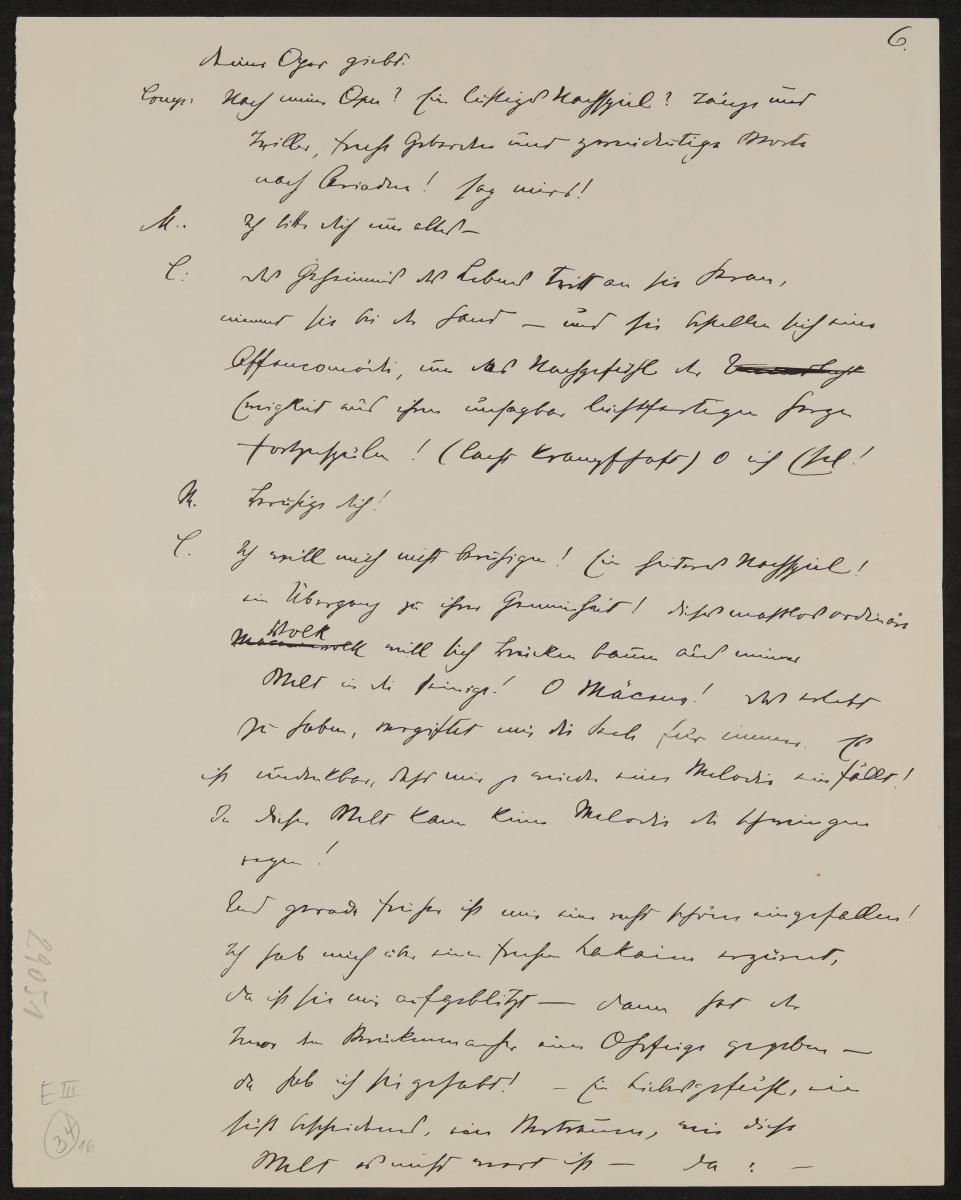 deiner Oper giebt.
6.
Comp: Nach meiner Oper? Ein lustiges Nachspiel? Tänze und
Triller, freche Gebärden und zweideutige Worte
nach Ariadne! sag mirs!
M.. Ich bitte dich um alles –
C: das Geheimnis des Lebens tritt an sie heran,
nimmt sie bei der Hand – und sie bestellen sich eine
Affencomödi, um das Nachgefühl der
Ewigkeit aus ihrem unsagbar leichtfertigen
fortzuspülen! (lacht krampfhaft) O ich Esel!
M. Beruhige dich!
C. Ich will mich nicht beruhigen! Ein heiteres Nachspiel!
ein Übergang zu ihrer Gemeinheit! dieses masslos ordinäre
Volk will sich Brücken bauen aus meiner
Welt in die seinige! O Mäcene! das erlebt
zu haben, vergiftet mir die Seele für immer. Es
ist undenkbar, dass mir je wieder eine Melodie einfällt!
In dieser Welt kann keine Melodie die Schwingen
regen!
Und gerade früher ist mir eine recht schöne eingefallen!
Ich hab mich über einen frechen Lakaien erzürnt,
da ist sie mir aufgeblitzt – dann hat der
Tenor dem Perückenmacher eine Ohrfeige gegeben –
da hab ich sie gehabt! – Ein Liebesgefühl, ein
süss bescheidenes, ein Vertrauen, wie diese
Welt es nicht wert ist – da: –
29051
E III
34
16